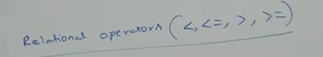 Relational operators (<, <=, >, >=)